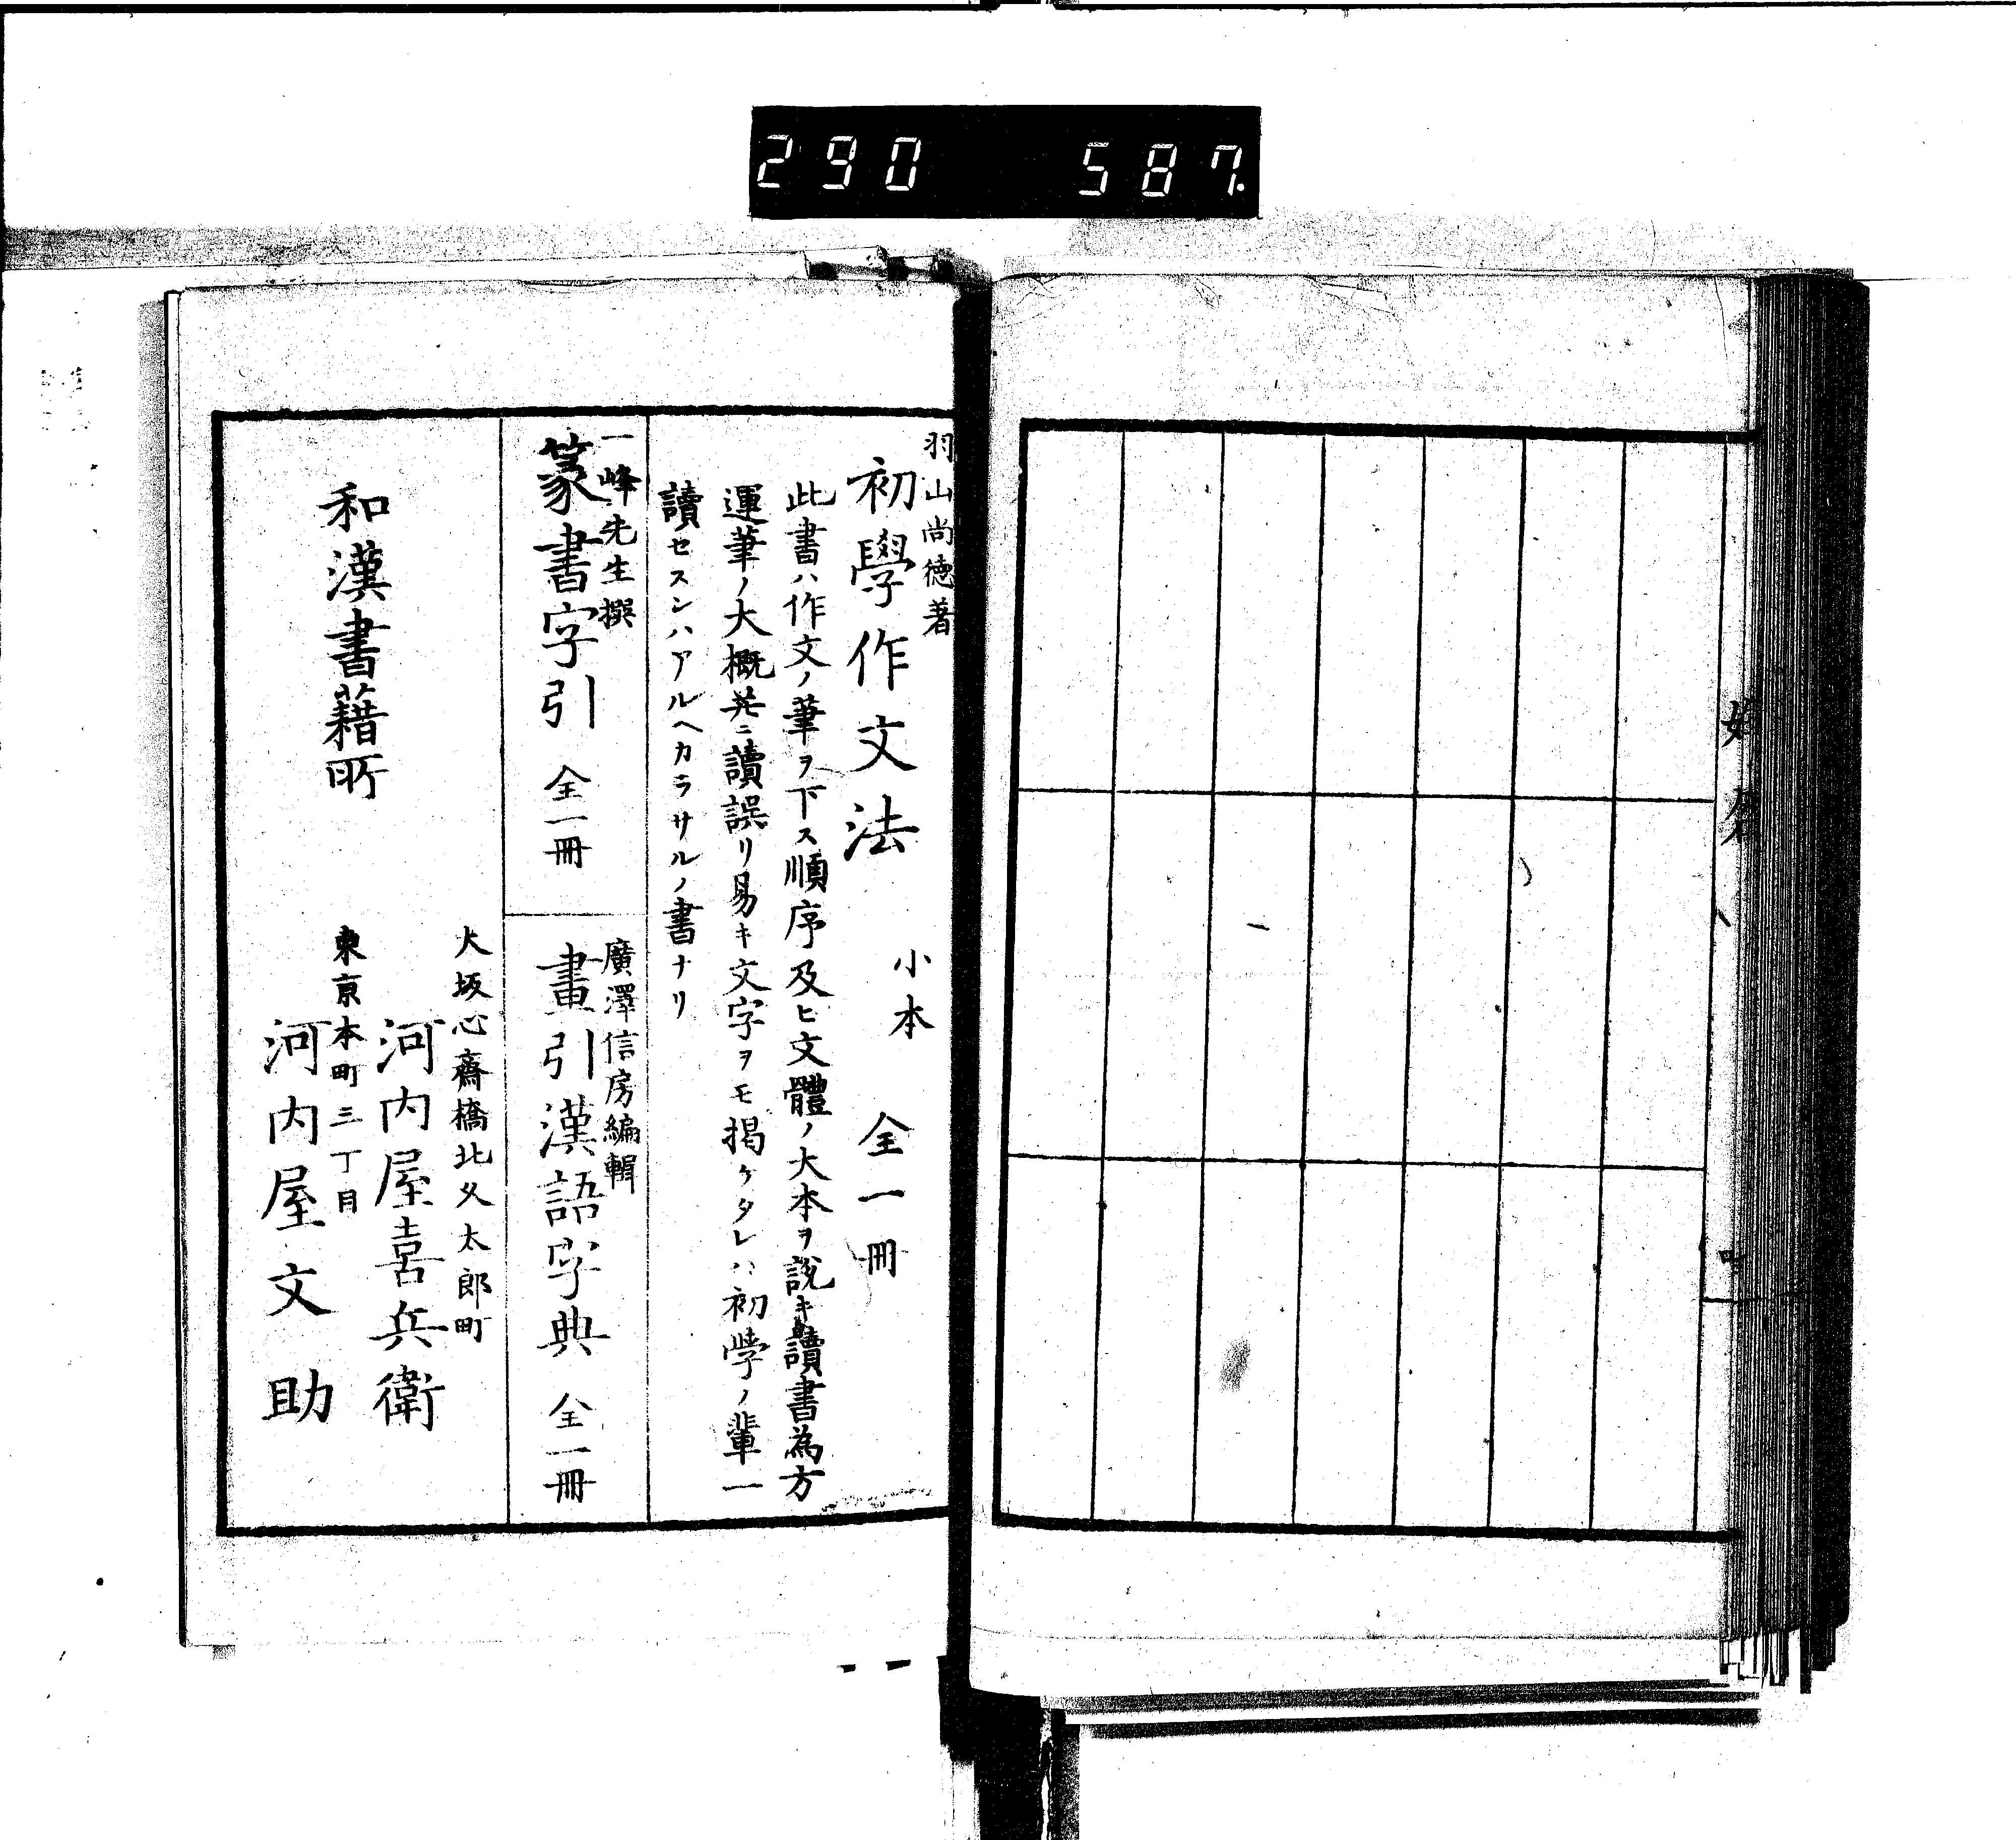 290 587.
羽山尚徳著
初學作文法 小本 全一冊
此書ハ作文ノ筆ヲ下ス順序及ヒ文體ノ大本ヲ說キ讀書為方
運筆ノ大概並ニ讀誤リ易キ文字ヲモ掲ケタレハ初學ノ輩一
讀セスンハアルヘカラサルノ書ナリ
一峰先生撰
篆書字引 全一冊
廣澤信房編輯
畫引漢語字典 全一冊
和漢書籍所
大坂心齋橋北久太郎町
河内屋喜兵衛
東京本町三丁目
河内屋文助